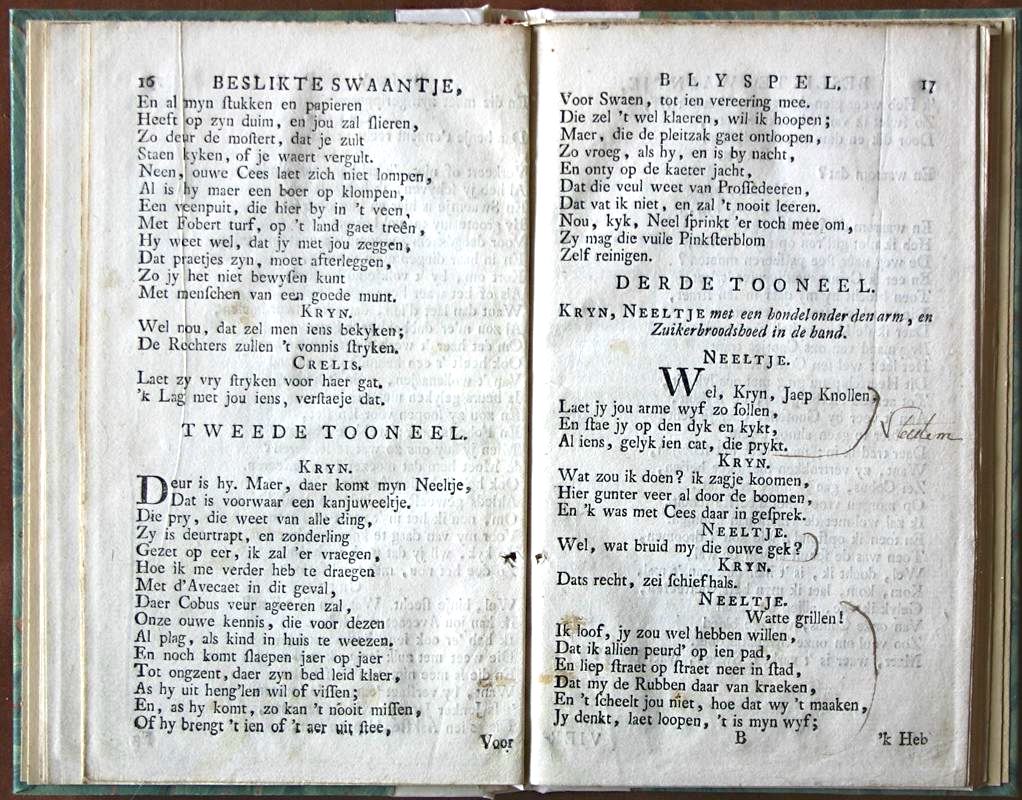 16 BESLIKTE SWAANTJE,
En al myn ſtukken en papieren
Heeft op zyn duim, en jou zal ſlieren,
Zo deur de moſtert, dat je zult
Staen kyken, of je waert vergult.
Neen, ouwe Cees laet zich niet lompen,
Al is hy maer een boer op klompen,
Een veenpuit, die hier by in 't veen,
Met Fobert turf, op 't land gaet treên,
Hy weet wel, dat jy met jou zeggen,
Dat praetjes zyn, moet afterleggen,
Zo jy het niet bewyſen kunt
Met menſchen van een goede munt.
KRYN.
Wel nou, dat zel men iens bekyken;
De Rechters zullen 't vonnis ſtryken.
CRELIS.
Laet zy vry ſtryken voor haer gat.
'k Lag met jou iens, verſtaeje dat.
TWEEDE TOONEEL.
KRYN.
Deur is hy. Maer, daer komt myn Neeltje,
Dat is voorwaar een kanjuweeltje.
Die pry, die weet van alle ding,
Zy is deurtrapt, en zonderling
Gezet op eer, ik zal 'er vraegen,
Hoe ik me verder heb te draegen
Met d'Avecaet in dit geval,
Daer Cobus veur ageeren zal,
Onze ouwe kennis, die voor dezen
Al plag, als kind in huis te weezen.
En noch komt ſlaepen jaer op jaer
Tot ongzent, daer zyn bed leid klaer,
As hy uit heng'len wil of viſſen;
En, as hy komt, zo kan 't nooit miſſen,
Of hy brengt 't ien of 't aer uit ſtee,
Voor
BLYSPEL. 17
Voor Swaen, tot ien vereering mee.
Die zel 't wel klaeren, wil ik hoopen;
Maer, die de pleitzak gaet ontloopen,
Zo vroeg, als hy, en is by nacht,
En onty op de kaeter jacht,
Dat die veul weet van Proſſedeeren,
Dat vat ik niet, en zal 't nooit leeren.
Nou, kyk, Neel ſprinkt 'er toch mee om,
Zy mag die vuile Pinkſterblom
Zelf reinigen.
DERDE TOONEEL.
KRYN, NEELTJE met een bondel onder den arm, en
Zuikerbroodshoed in de hand.
NEELTJE.
Wel, Kryn, Jaep Knollen,
Laet jy jou arme wyf zo ſollen,
En ſtae jy op den dyk en kykt,
Al iens, gelyk ien cat, die prykt.
KRYN.
Wat zou ik doen? ik zagje koomen,
Hier gunter veer al door de boomen,
En 'k was met Cees daar in geſprek.
NEELTJE.
Wel, wat bruid my die ouwe gek?
KRYN.
Dats recht, zei ſchiefhals.
NEELTJE.
Watte grillen!
Ik loof, jy zou wel hebben willen,
Dat ik allien peurd' op ien pad,
En liep ſtraet op ſtraet neer in ſtad,
Dat my de Rubben daar van kraeken,
En 't ſcheelt jou niet, hoe dat wy 't maaken,
Jy denkt, laet loopen, 't is myn wyf;
B 'k Heb